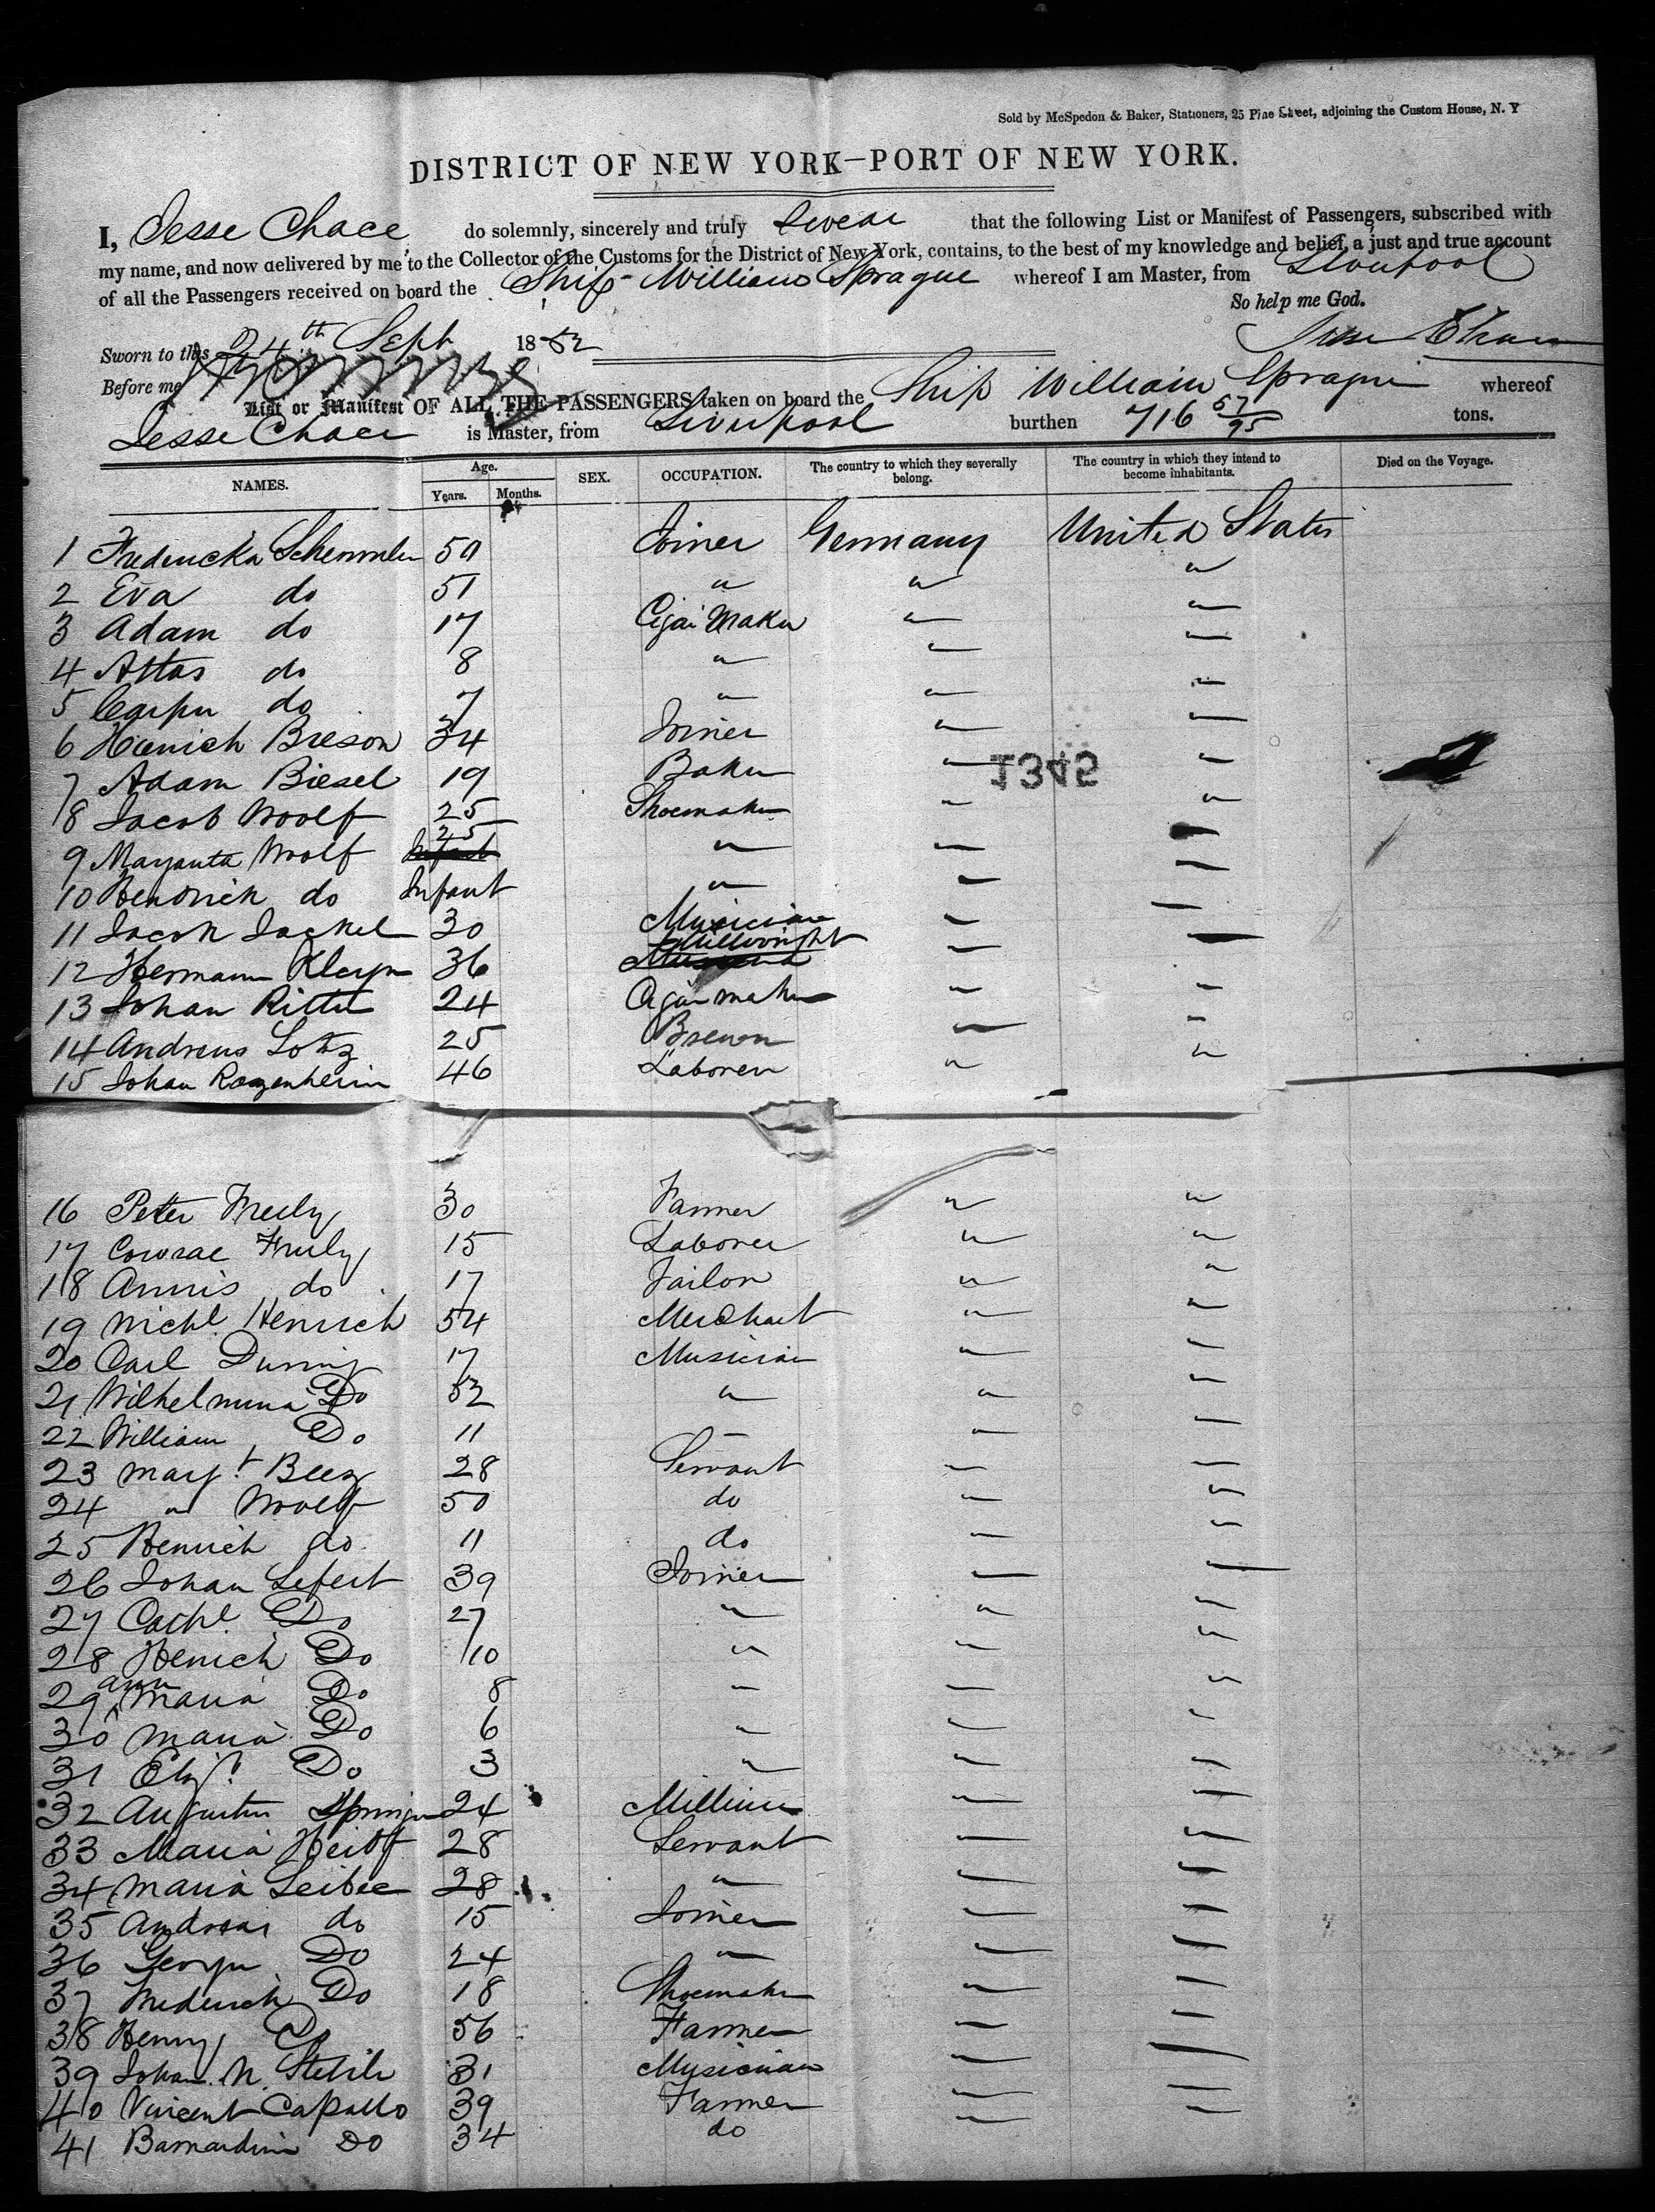 Sold by McSpedon & Baker, Stationers, 25 Pine Street, adjoining the Custom House, N. Y
DISTRICT OF NEW YORK—PORT OF NEW YORK.
I, Jesse Chace do solemnly, sincerely and truly Swear that the following List or Manifest of Passengers, subscribed with
my name, and now delivered by me to the Collector of the Customs for the District of New York, contains, to the best of my knowledge and belief, a just and true account
of all the Passengers received on board the Ship William Sprague whereof I am Master, from Liverpool
So help me God.
Sworn to this 24th Sept 1852 Jesse Chace
Before me
List or Manifest OF ALL THE PASSENGERS taken on board the Ship William Sprague whereof
Jesse Chace is Master, from Liverpool burthen 716 57/95 tons.
NAMES. Age. Years. Months. SEX. OCCUPATION. The country to which they severally belong. The country in which they intend to become inhabitants. Died on the Voyage.
1 Fredericka 50 Joiner Germany United States
2 Eva do 51 " " "
3 Adam do 17 Cigar Maker " "
4 do 8 " " "
5 do 7 " " "
6 Heinich 34 Joiner " "
1345
7 Adam Biesel 19 Baker " "
8 Jacob Woolf 25 Shoemaker " "
9 Woolf 25 " " "
10 Hendrick do Infant " " "
11 Jacob Jackel 30 Musician " "
12 Hermann 36 Millwright " "
13 Johan Ritter 24 Cigar maker " "
14 Andreus Lotz 25 Brewer " "
15 Johan 46 Laborer " "
16 Peter 30 Farmer " "
17 15 Laborer " "
18 Annis do 17 Tailor " "
19 Michl Henrich 54 Merchant " "
20 Carl 17 Musician " "
21 Wilhelmina Do 52 " " "
22 William Do 11 " " "
23 Margt 28 Servant " "
24 " Woolf 50 do " "
25 Henrich do 11 do " "
26 Johan Lefert 39 Joiner " "
27 Cathe Do 27 " " "
28 Henich Do 10 " " "
29 Ann Maria Do 8 " " "
30 Maria Do 6 " " "
31 Elizh Do 3 " " "
32 24 Milliner " "
33 Maria 28 Servant " "
34 Maria 28 " " "
35 Andreas do 15 Joiner " "
36 George Do 24 " " "
37 Frederick Do 18 Shoemaker " "
38 Henry Do 56 Farmer " "
39 Johan N. 31 Musician " "
40 Vincent 39 Farmer " "
41 Do 34 do " "